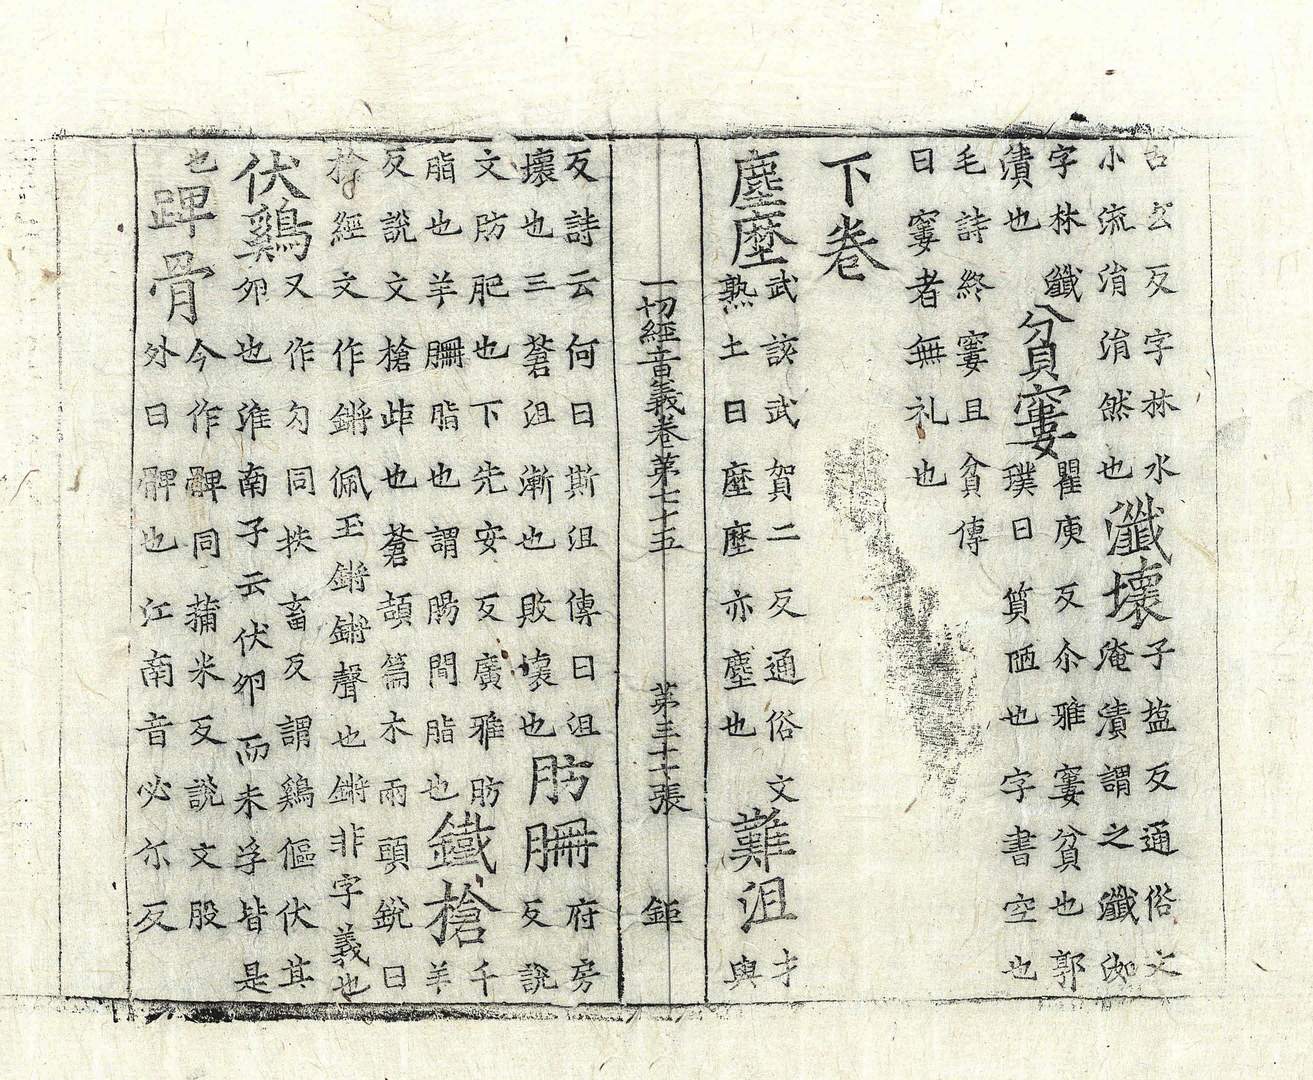 古玄反字林水
小流涓涓然也
瀸壞
子塩反通俗文
淹漬謂之瀸洳
字林瀸
漬也
貧窶
瞿庾反尒雅窶貧也郭
璞曰質陋也字書空也
毛詩終窶且貧傳
曰窶者無礼也
下卷
塵塺
武該武賀二反通俗文
熟土曰塺塺亦塵也
難沮
才
與
一切經音義卷第七十五 第三十七張 鉅
反詩云何曰斯沮傳曰沮
壞也三蒼沮漸也敗壞也
肪𦙱
府房
反說
文肪肥也下先安反廣雅肪
脂也羊𦙱脂也謂腸間脂也
鐵槍
千
羊
反說文槍歫也蒼頡篇木兩頭銳曰
槍經文作鏘佩玉鏘鏘聲也鏘非字義也
伏鷄
又作勾同扶畜反謂鷄傴伏其
卵也淮南子云伏卵而未孚皆是
也
䠋骨
今作髀同蒲米反說文股
外曰髀也江南音必尒反